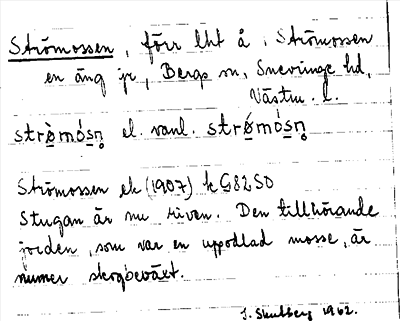 Strömossen, förr lht å Strömossen
en äng jr, Bergs sn, Snevringe hd,
Västm. l.
strø̀mósn̥ el. vanl. strǿmósn̥
Strömossen ek (1907) k G82 SO
Stugan är nu riven. Den tillhörande
jorden, som var en uppodlad mosse, är
numer skogbeväxt.
J. Stulberg 1962.